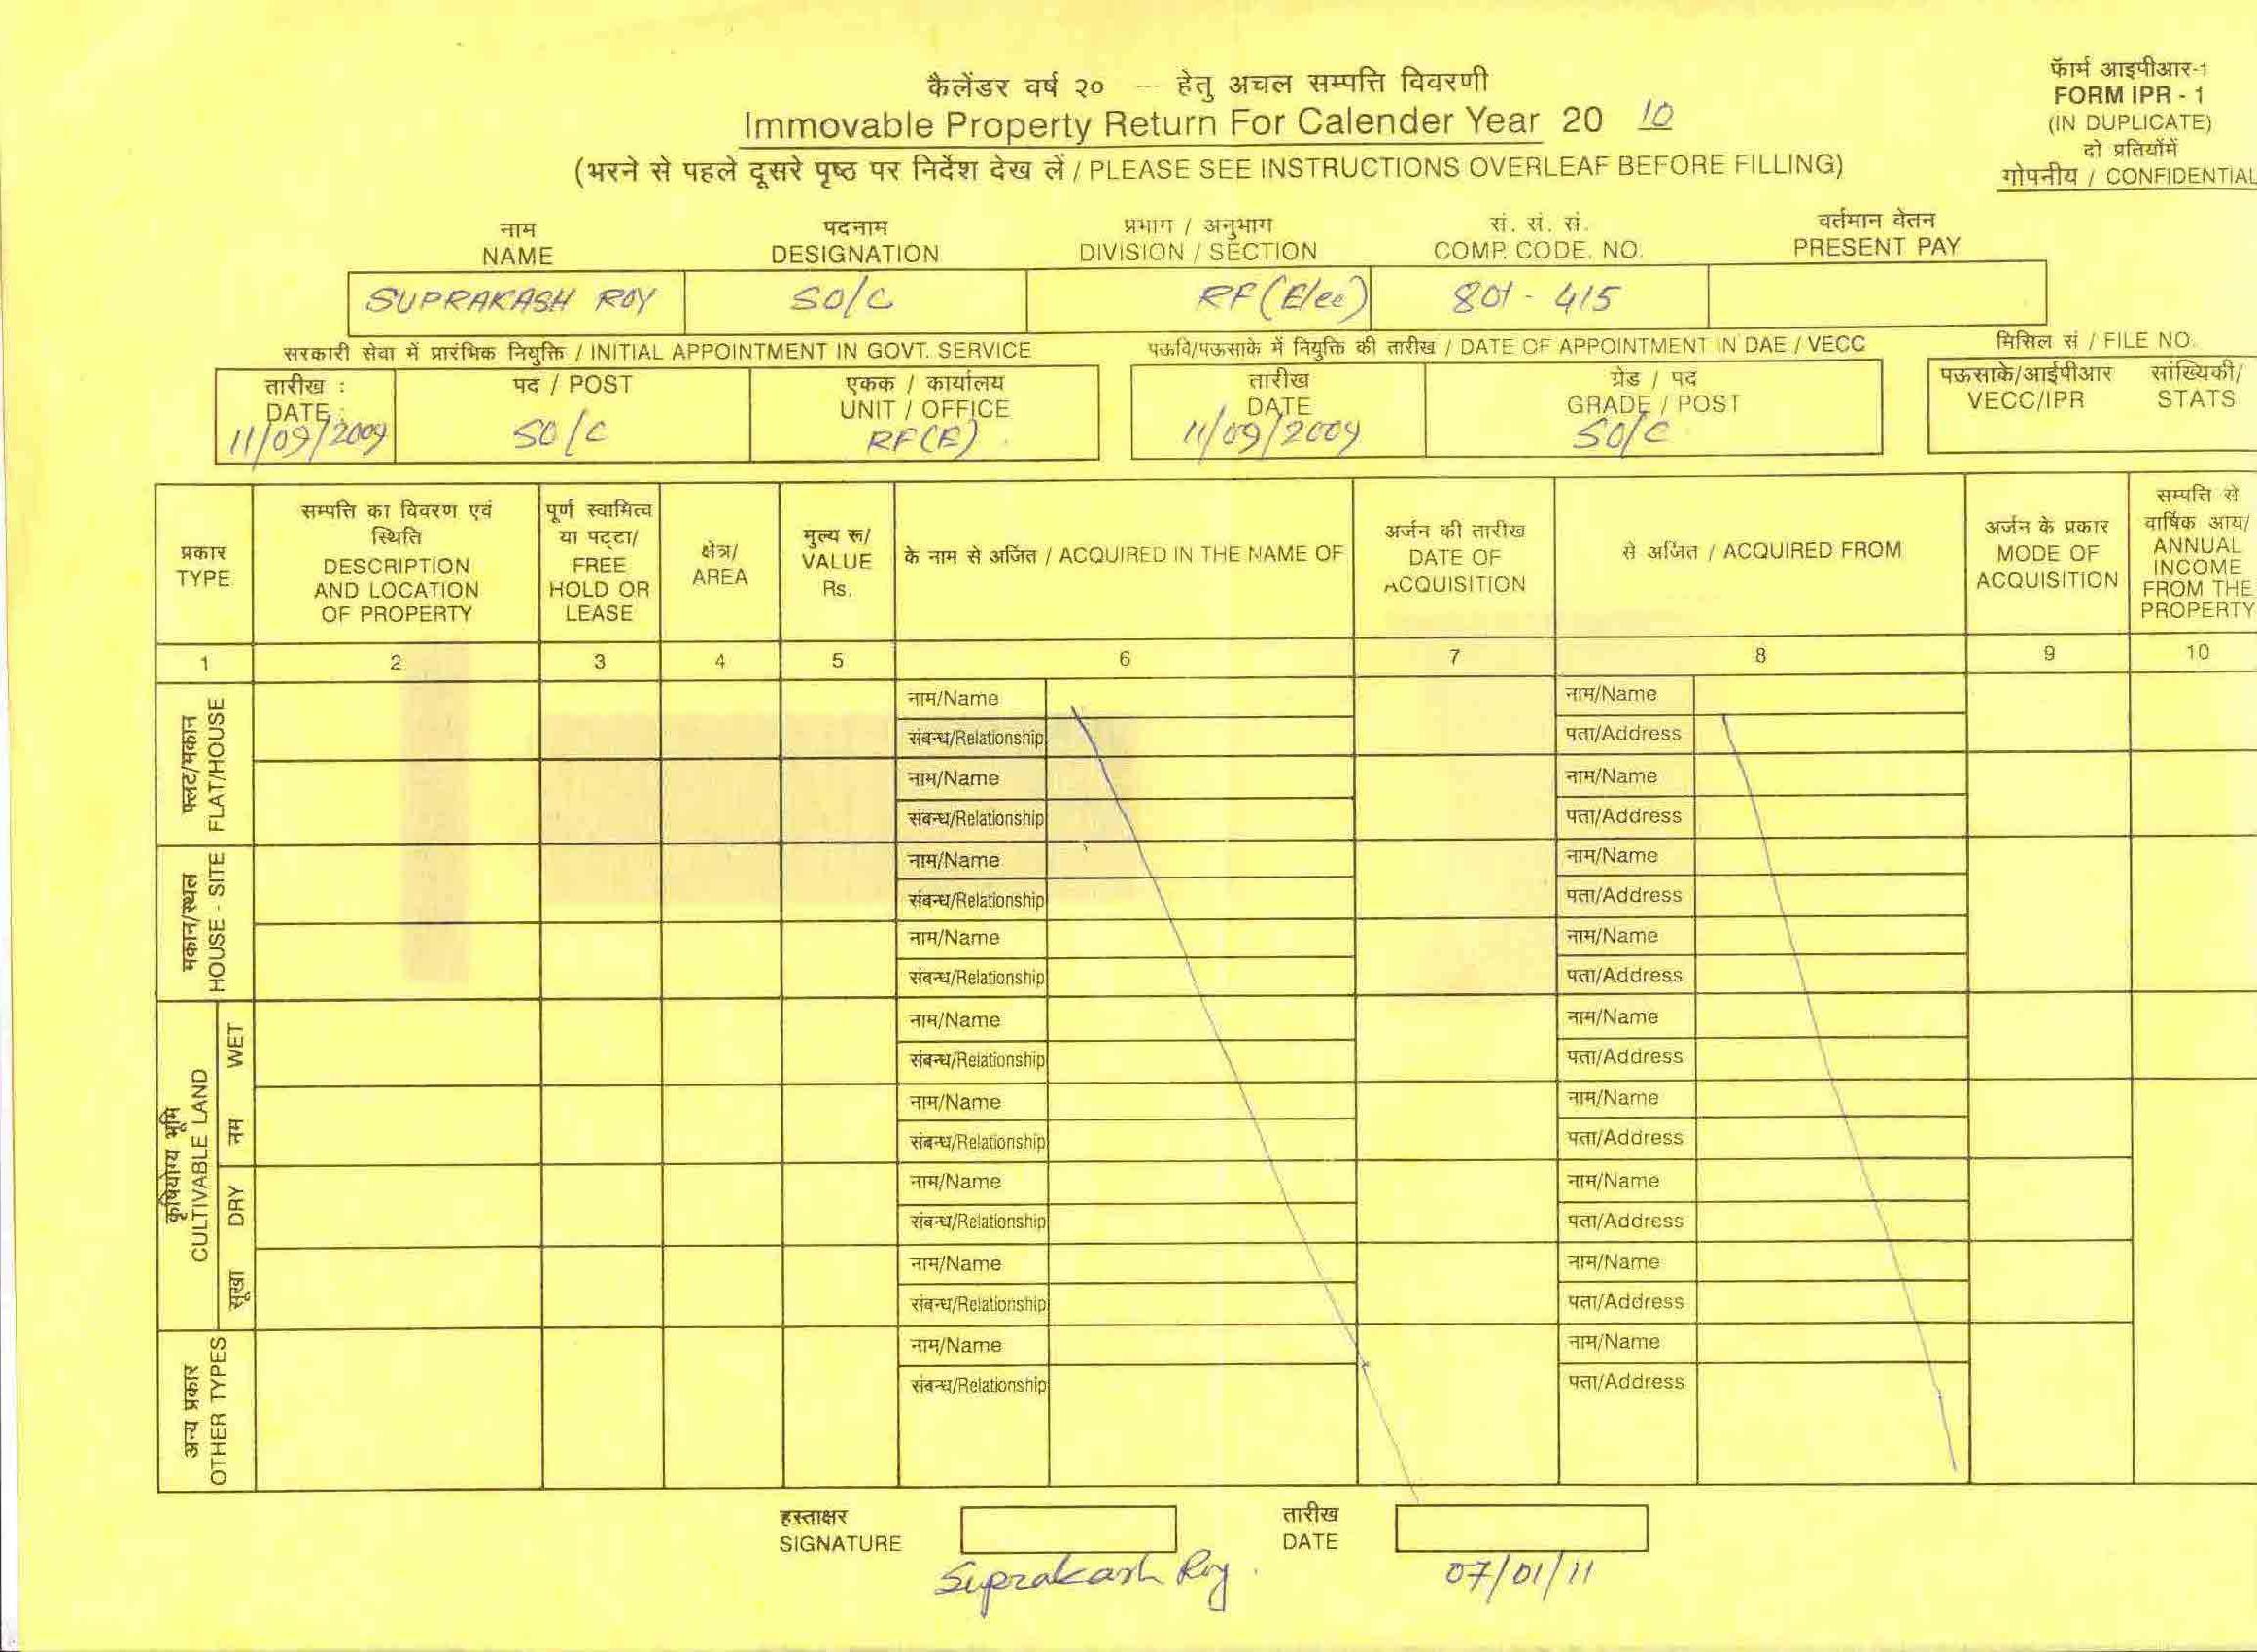 कैलेंडर वर्ष २० --- हेतु अचल सम्पत्ति विवरणी
Immovable Property Return For Calender Year 20 10
(भरने से पहले दूसरे पृष्ठ पर निर्देश देख लें / PLEASE SEE INSTRUCTIONS OVERLEAF BEFORE FILLING)
फॅार्म आइपीआर-1
FORM IPR - 1
(IN DUPLICATE)
दो प्रतियोंमें
गोपनीय / CONFIDENTIAL
नाम पदनाम प्रभाग / अनुभाग सं. सं. सं. वर्तमान वेतन
NAME DESIGNATION DIVISION / SECTION COMP. CODE. NO. PRESENT PAY
SUPRAKASH ROY SO/C RF(Elec) 801 - 415
सरकारी सेवा में प्रारंभिक नियुक्ति / INITIAL APPOINTMENT IN GOVT. SERVICE
पऊवि/पऊसाके में नियुक्ति की तारीख / DATE OF APPOINTMENT IN DAE / VECC
मिसिल सं / FILE NO.
तारीख : पद / POST एकक / कार्यालय तारीख ग्रेड / पद पऊसाके/आईपीआर सांख्यिकी/
DATE : UNIT / OFFICE DATE GRADE / POST VECC/IPR STATS
11/09/2009 SO/C RF(E) 11/09/2009 SO/C
प्रकार
TYPE
सम्पत्ति का विवरण एवं
स्थिति
DESCRIPTION
AND LOCATION
OF PROPERTY
पूर्ण स्वामित्व
या पट्टा/
FREE
HOLD OR
LEASE
क्षेत्र/
AREA
मुल्य रू/
VALUE
Rs.
के नाम से अर्जित / ACQUIRED IN THE NAME OF
अर्जन की तारीख
DATE OF
ACQUISITION
से अर्जित / ACQUIRED FROM
अर्जन के प्रकार
MODE OF
ACQUISITION
सम्पत्ति से
वार्षिक आय/
ANNUAL
INCOME
FROM THE
PROPERTY
1 2 3 4 5 6 7 8 9 10
फ्लट/मकान
FLAT/HOUSE
नाम/Name नाम/Name
संबन्ध/Relationship पता/Address
नाम/Name नाम/Name
संबन्ध/Relationship पता/Address
मकान/स्थल
HOUSE - SITE
नाम/Name नाम/Name
संबन्ध/Relationship पता/Address
नाम/Name नाम/Name
संबन्ध/Relationship पता/Address
कृषियोग्य भूमि
CULTIVABLE LAND
नम WET
नाम/Name नाम/Name
संबन्ध/Relationship पता/Address
नाम/Name नाम/Name
संबन्ध/Relationship पता/Address
सूखा DRY
नाम/Name नाम/Name
संबन्ध/Relationship पता/Address
नाम/Name नाम/Name
संबन्ध/Relationship पता/Address
अन्य प्रकार
OTHER TYPES
नाम/Name नाम/Name
संबन्ध/Relationship पता/Address
हस्ताक्षर तारीख
SIGNATURE DATE
Suprakash Roy. 07/01/11